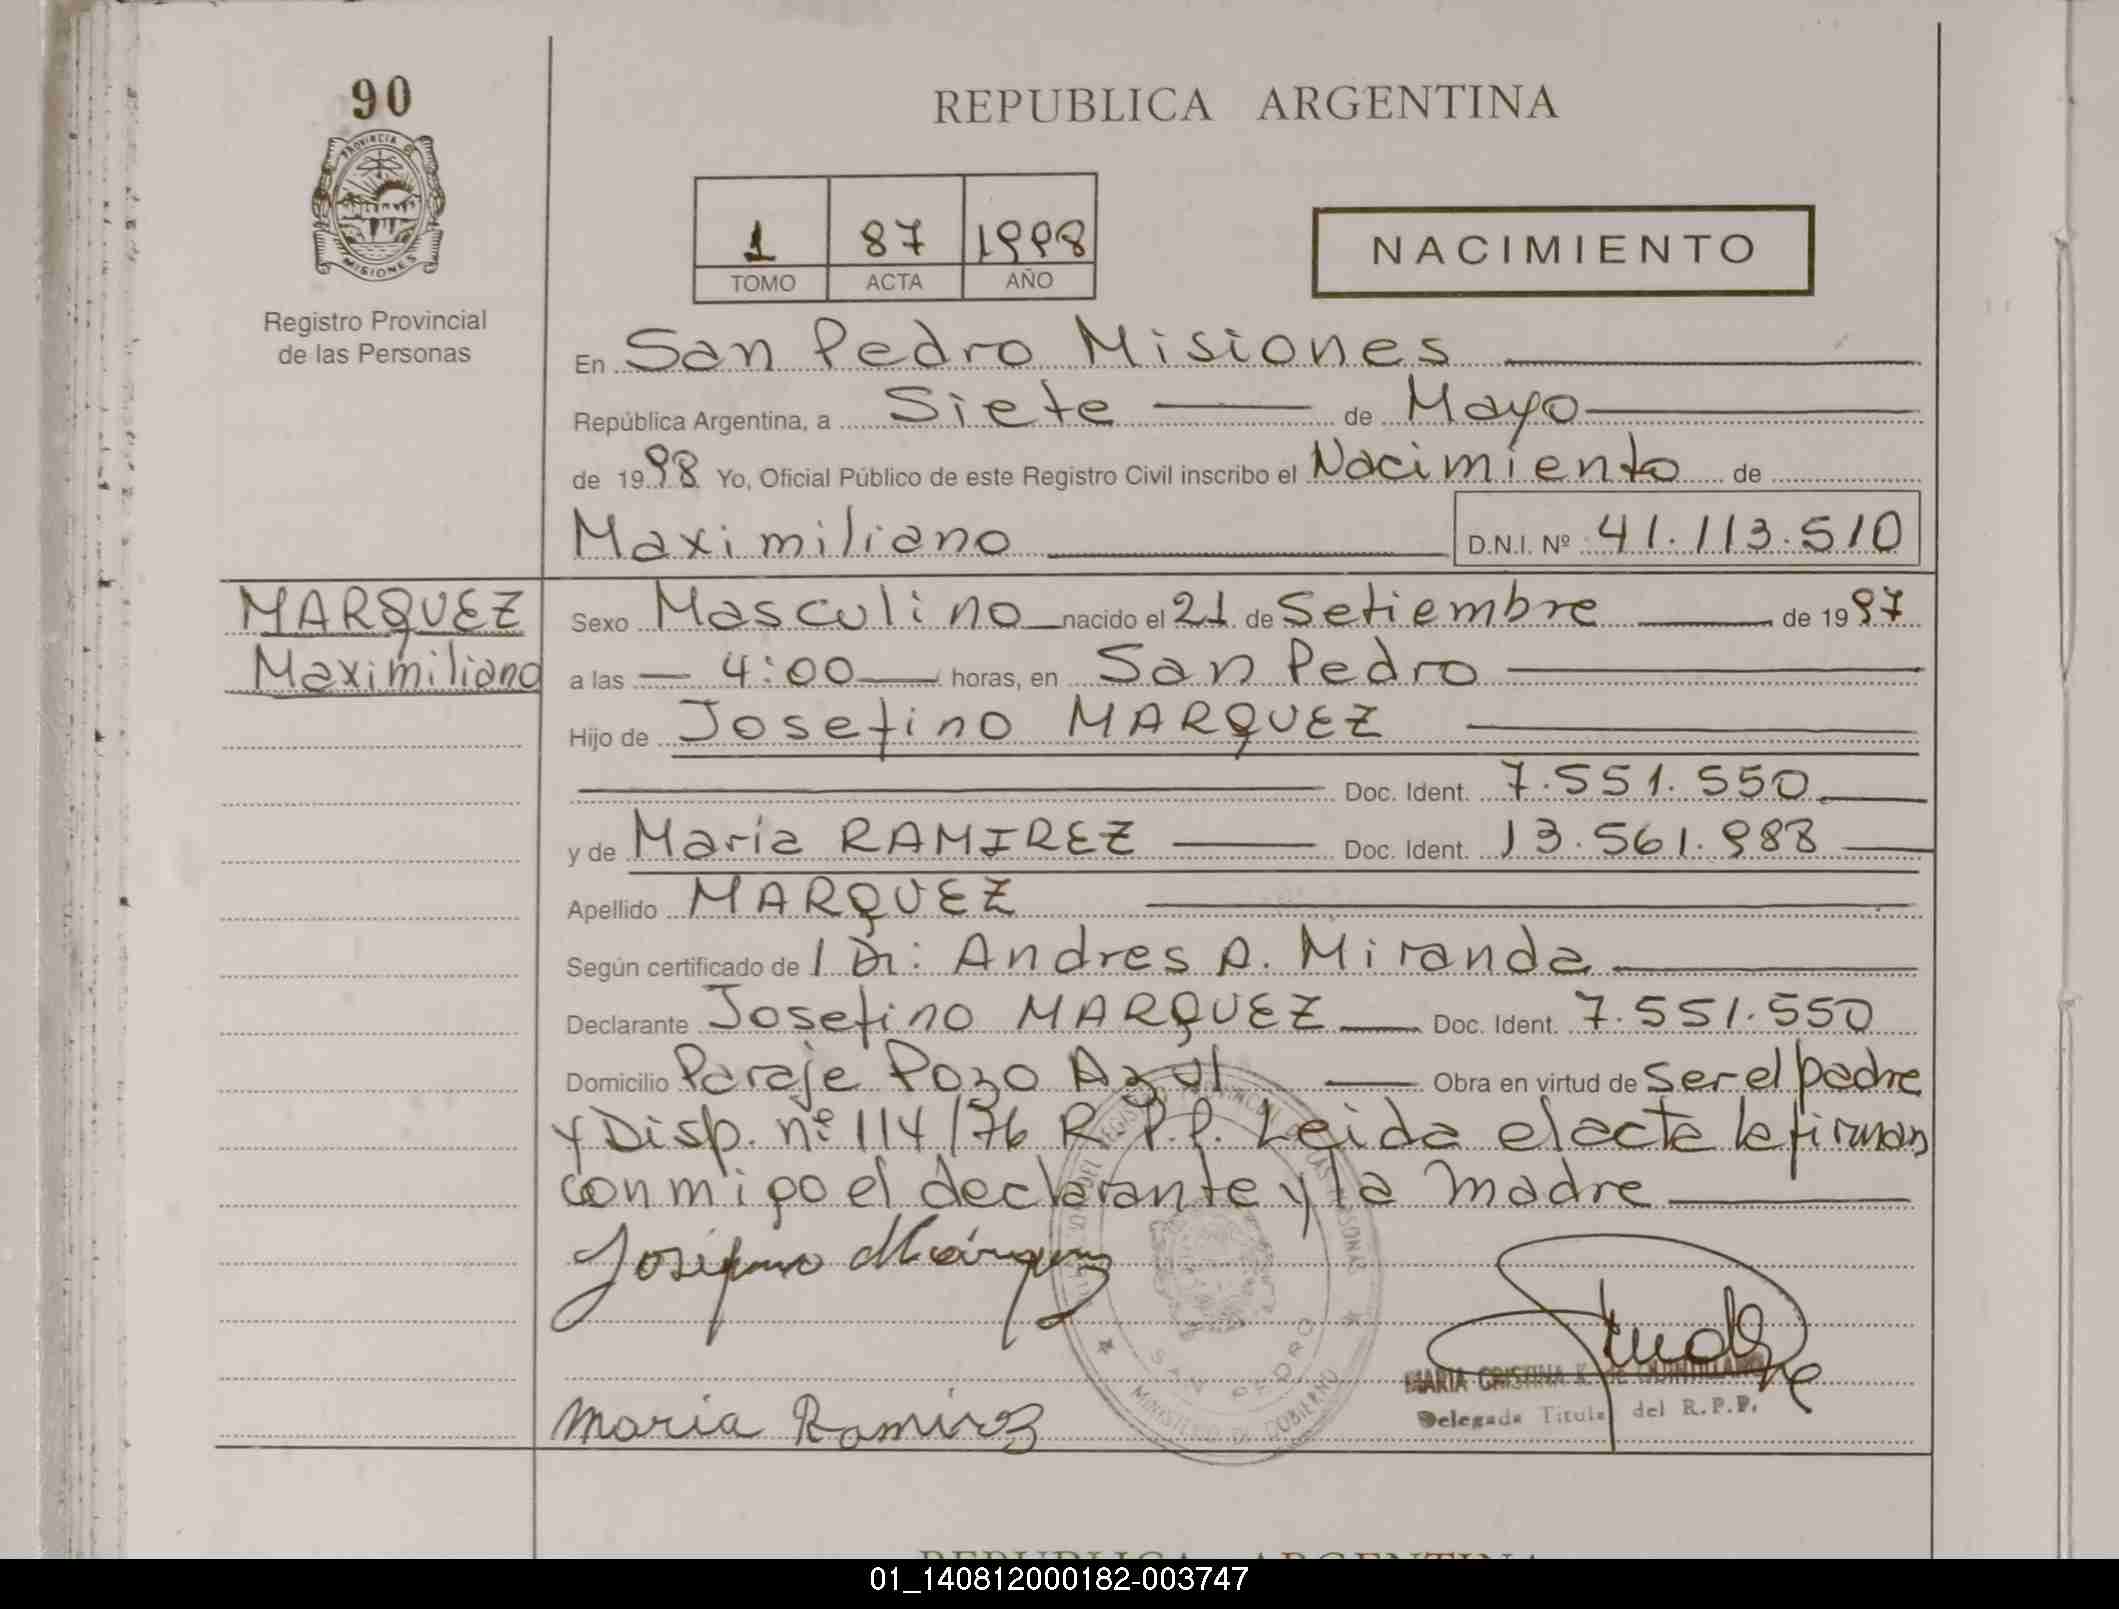 90
REPUBLICA ARGENTINA
PROVINCIA DE
MISIONES
Registro Provincial
de las Personas
1 87 1998
TOMO ACTA AÑO
NACIMIENTO
En San Pedro Misiones
República Argentina, a Siete de Mayo
de 1998 Yo, Oficial Público de este Registro Civil inscribo el Nacimiento de
Maximiliano D.N.I. Nº 41.113.510
MARQUEZ
Maximiliano
Sexo Masculino nacido el 21 de Setiembre de 1997
a las 4:00 horas, en San Pedro
Hijo de Josefino MARQUEZ
Doc. Ident. 7.551.550
y de Maria RAMIREZ Doc. Ident. 13.561.988
Apellido MARQUEZ
Según certificado de / Dr: Andres A. Miranda
Declarante Josefino MARQUEZ Doc. Ident. 7.551.550
Domicilio Paraje Pozo Azul Obra en virtud de ser el padre
y Disp. nº 114/76 R.P.P. Leida el acta la firman
conmigo el declarante y la madre
Josefino Márquez
SAN PEDRO
MINISTERIO DE GOBIERNO
MARIA CRISTINA K. DE
Delegada Titular del R.P.P.
Maria Ramirez
REPUBLICA ARGENTINA
01_140812000182-003747